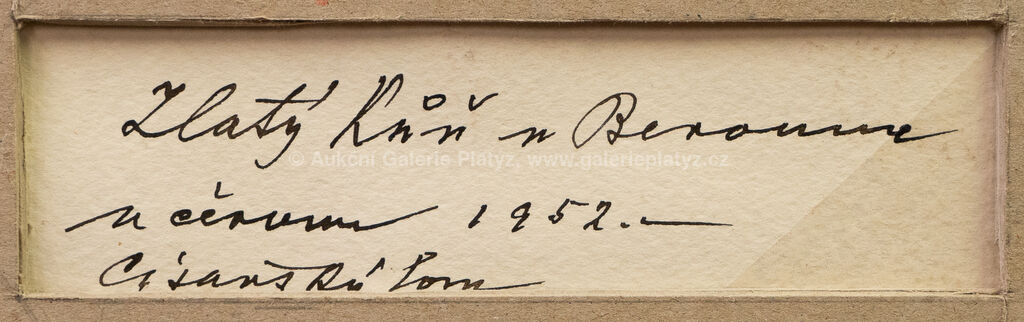 Zlatý Kůň u Berouna
© Aukční Galerie Platýz, www.galerieplatyz.cz
v červnu 1952.—
Císařský lom